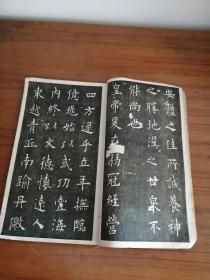 安體之佳所誠養神
之勝地漢之甘泉不
能尚也
皇帝爰在弱冠經營
四方逮乎立年撫臨
億兆始以武功壹海
內終以文德懷遠人
東越青丘南踰丹徼